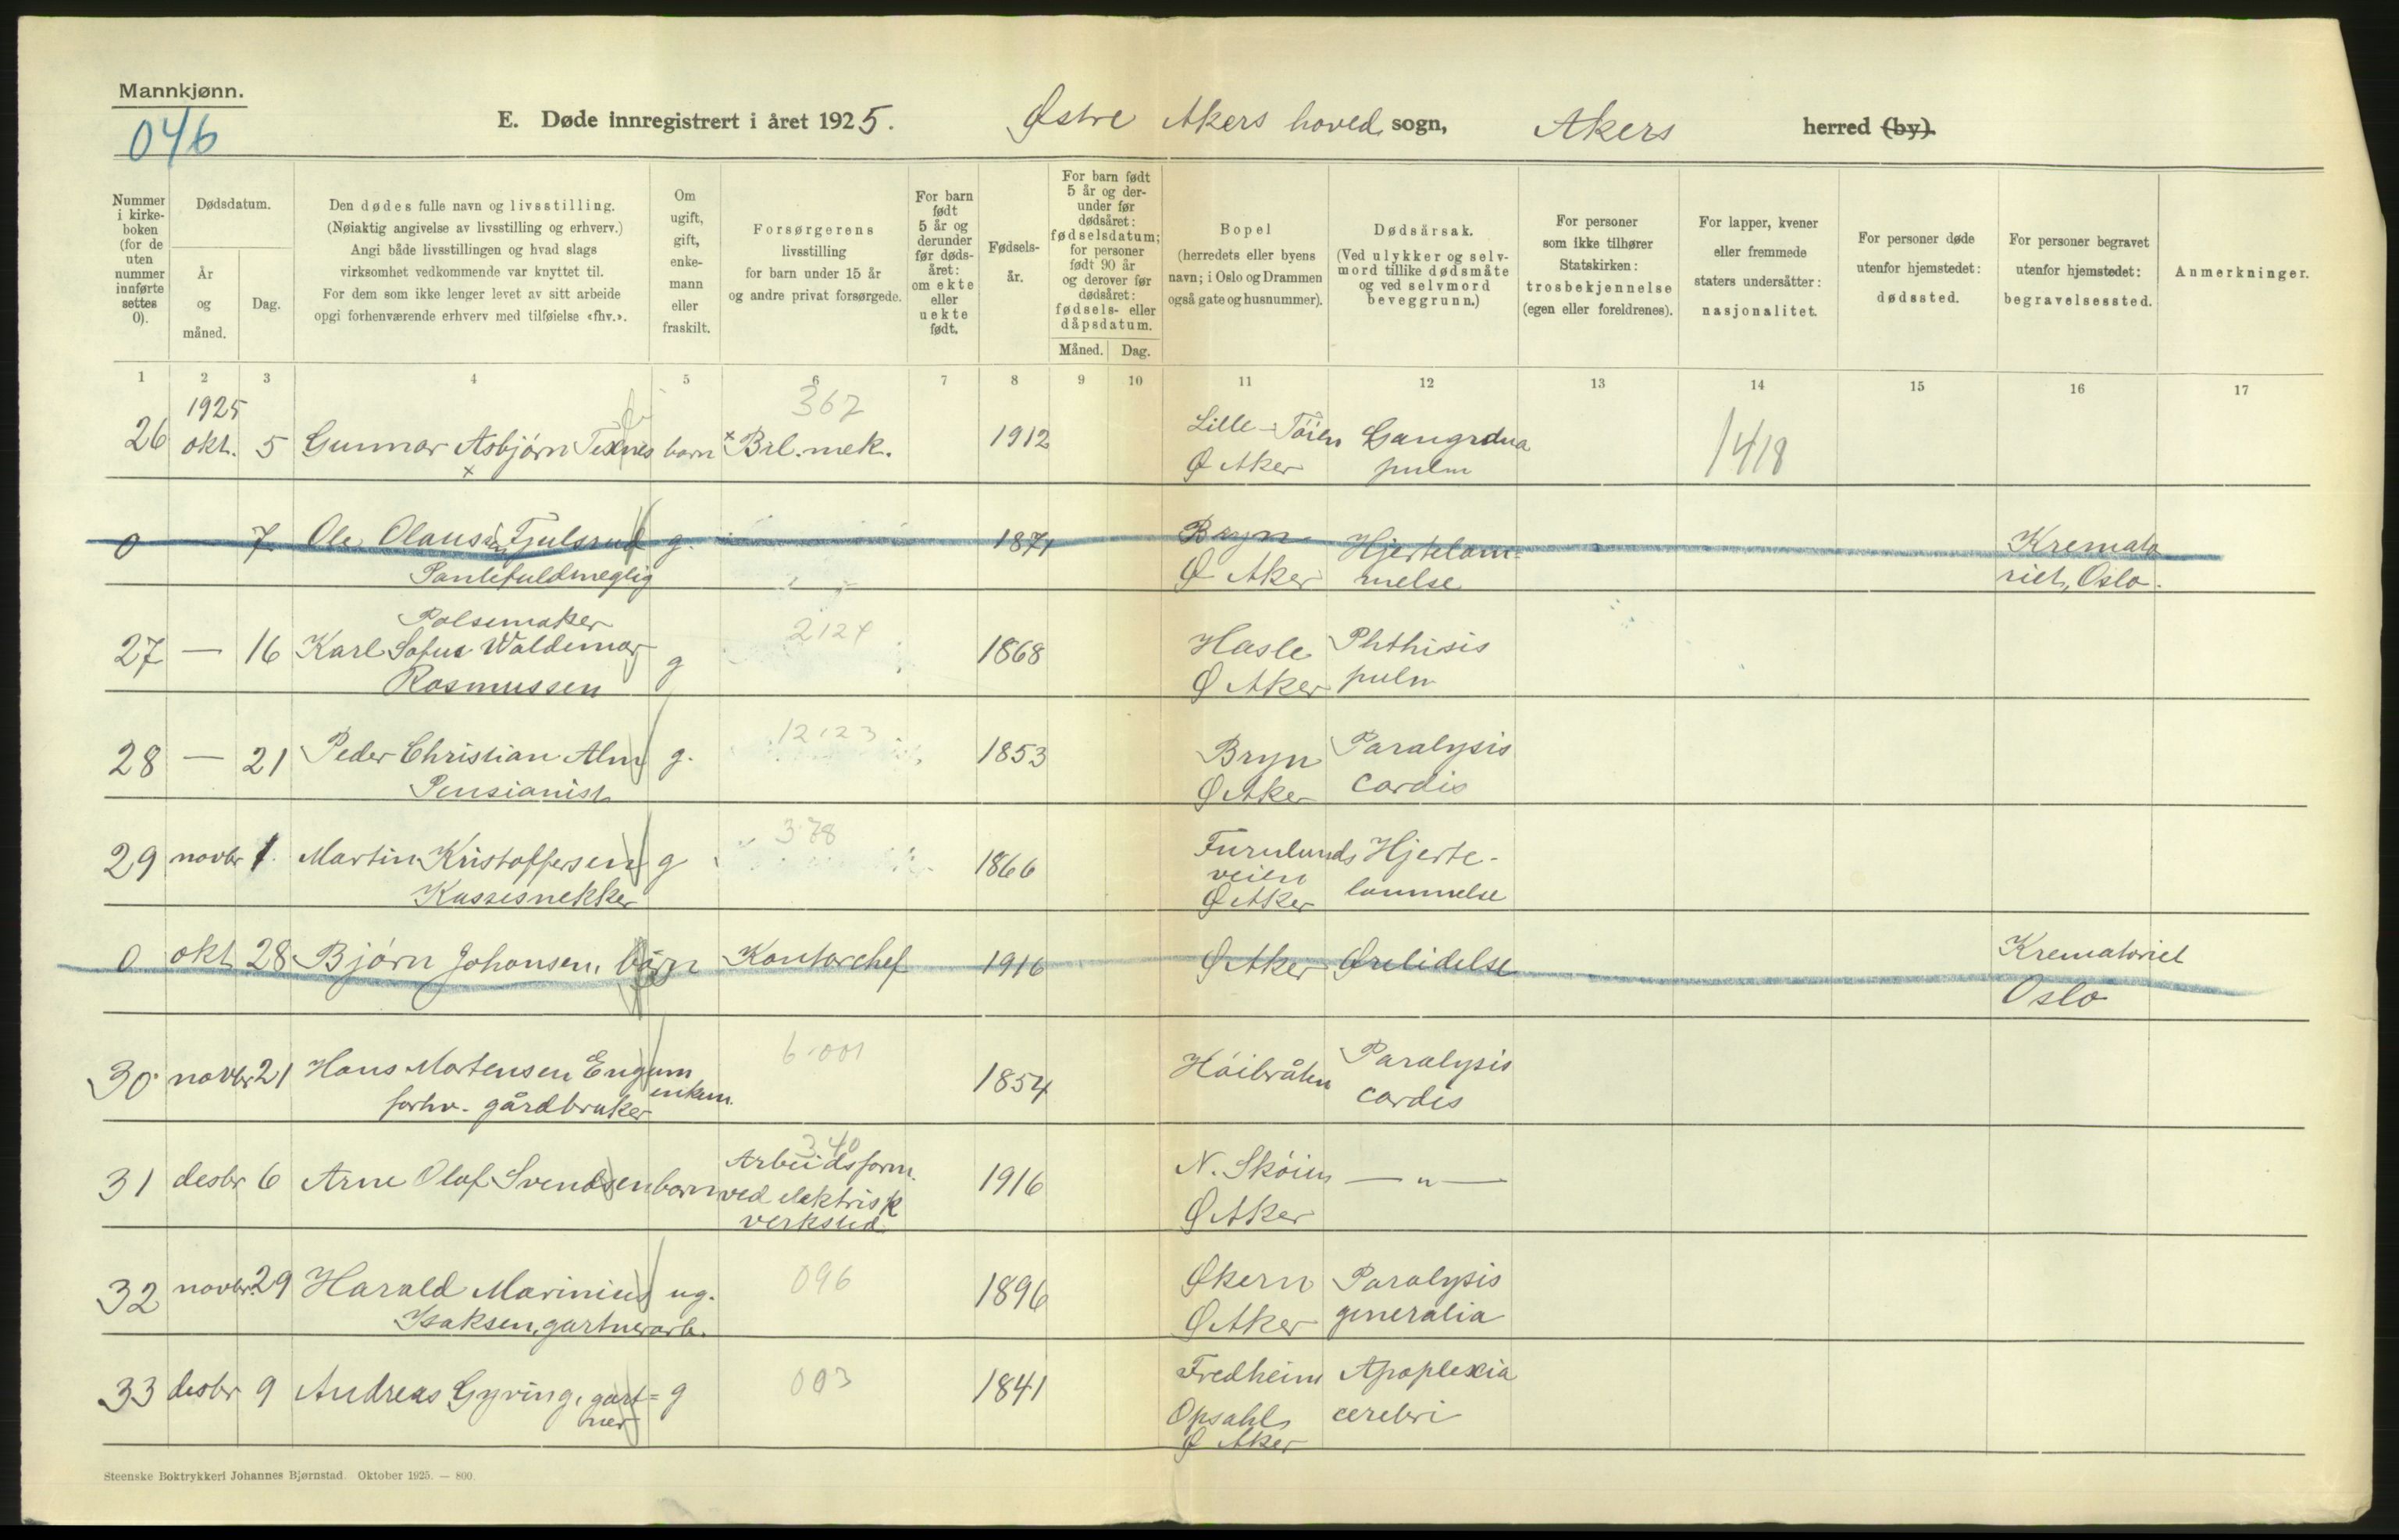 Mannkjønn.
046
E. Døde innregistrert i året 1925.
Østre Akers hoved sogn,
Akers
herred (by).
Nummer i kirke- boken (for de uten nummer innførte settes 0).
Dødsdatum.
År og måned.
Dag.
Den dødes fulle navn og livsstilling.
(Nøiaktig angivelse av livsstilling og erhverv.)
Angi både livsstillingen og hvad slags
virksomhet vedkommende var knyttet til.
For dem som ikke lenger levet av sitt arbeide
opgi forhenværende erhverv med tilføielse «fhv.».
Om ugift, gift, enke- mann eller fraskilt.
Forsørgerens
livsstilling
for barn under 15 år
og andre privat forsørgede.
For barn født 5 år og derunder før døds- året: om ekte eller uekte født.
Fødsels- år.
For barn født 5 år og der- under før dødsåret: fødselsdatum; for personer født 90 år og derover før dødsåret: fødsels- eller dåpsdatum.
Måned.
Dag.
Bopel
(herredets eller byens
navn; i Oslo og Drammen
også gate og husnummer).
Dødsårsak.
(Ved ulykker og selv-
mord tillike dødsmåte
og ved selvmord
beveggrunn.)
For personer
som ikke tilhører
Statskirken:
trosbekjennelse
(egen eller foreldrenes).
For lapper, kvener
eller fremmede
staters undersåtter:
nasjonalitet.
For personer døde
utenfor hjemstedet:
dødssted.
For personer begravet
utenfor hjemstedet:
begravelsessted.
Anmerkninger.
1 2 3 4 5 6 7 8 9 10 11 12 13 14 15 16 17
1925
367
26 okt. 5 Gunnar Asbjørn barn Bil.mek. 1912 Lille-Töien Gangræna 1418
Ø Aker pulm
0 — 7 Ole Olaussen Fjulsrud g. 1871 Bryn Hjertelam- Kremato
Pantefuldmegtig Ø Aker melse riet, Oslo.
Pølsemaker
27 — 16 Karl Sofus Waldemar g 2124 1868 Hasle Phthisis
Rasmussen Ø Aker pulm
28 — 21 Peder Christian Alm g. 12123 1853 Bryn Paralysis
Pensionist Ø Aker cordis
29 novbr 1. Martin Kristoffersen g 378 1866 Furulunds Hjerte-
Kassesnekker veien Ø Aker lammelse
0 okt 28 Bjørn Johansen, barn Kontorchef 1916 Ø Aker Ørelidelse Krematoriet
Oslo
30 novbr 21 Hans Mortensen Engum enkem. 6.001 1854 Höibråten Paralysis
forhv. gårdbruker cordis
340
31 desbr 6 Arne Olaf Svendsen barn Arbeidsform. 1916 N. Skøien — " —
ved elektrisk Ø Aker
verksted
32 novbr. 29 Harald Marinius ug. 096 1896 Økern Paralysis
Isaksen, gartnerarb. Ø Aker generalia
33 desbr 9 Andreas Gyving, gart- g 003 1841 Fredheim Apoplexia
ner Opsahl cerebri
Ø Aker
Steenske Boktrykkeri Johannes Bjørnstad. Oktober 1925. — 800.